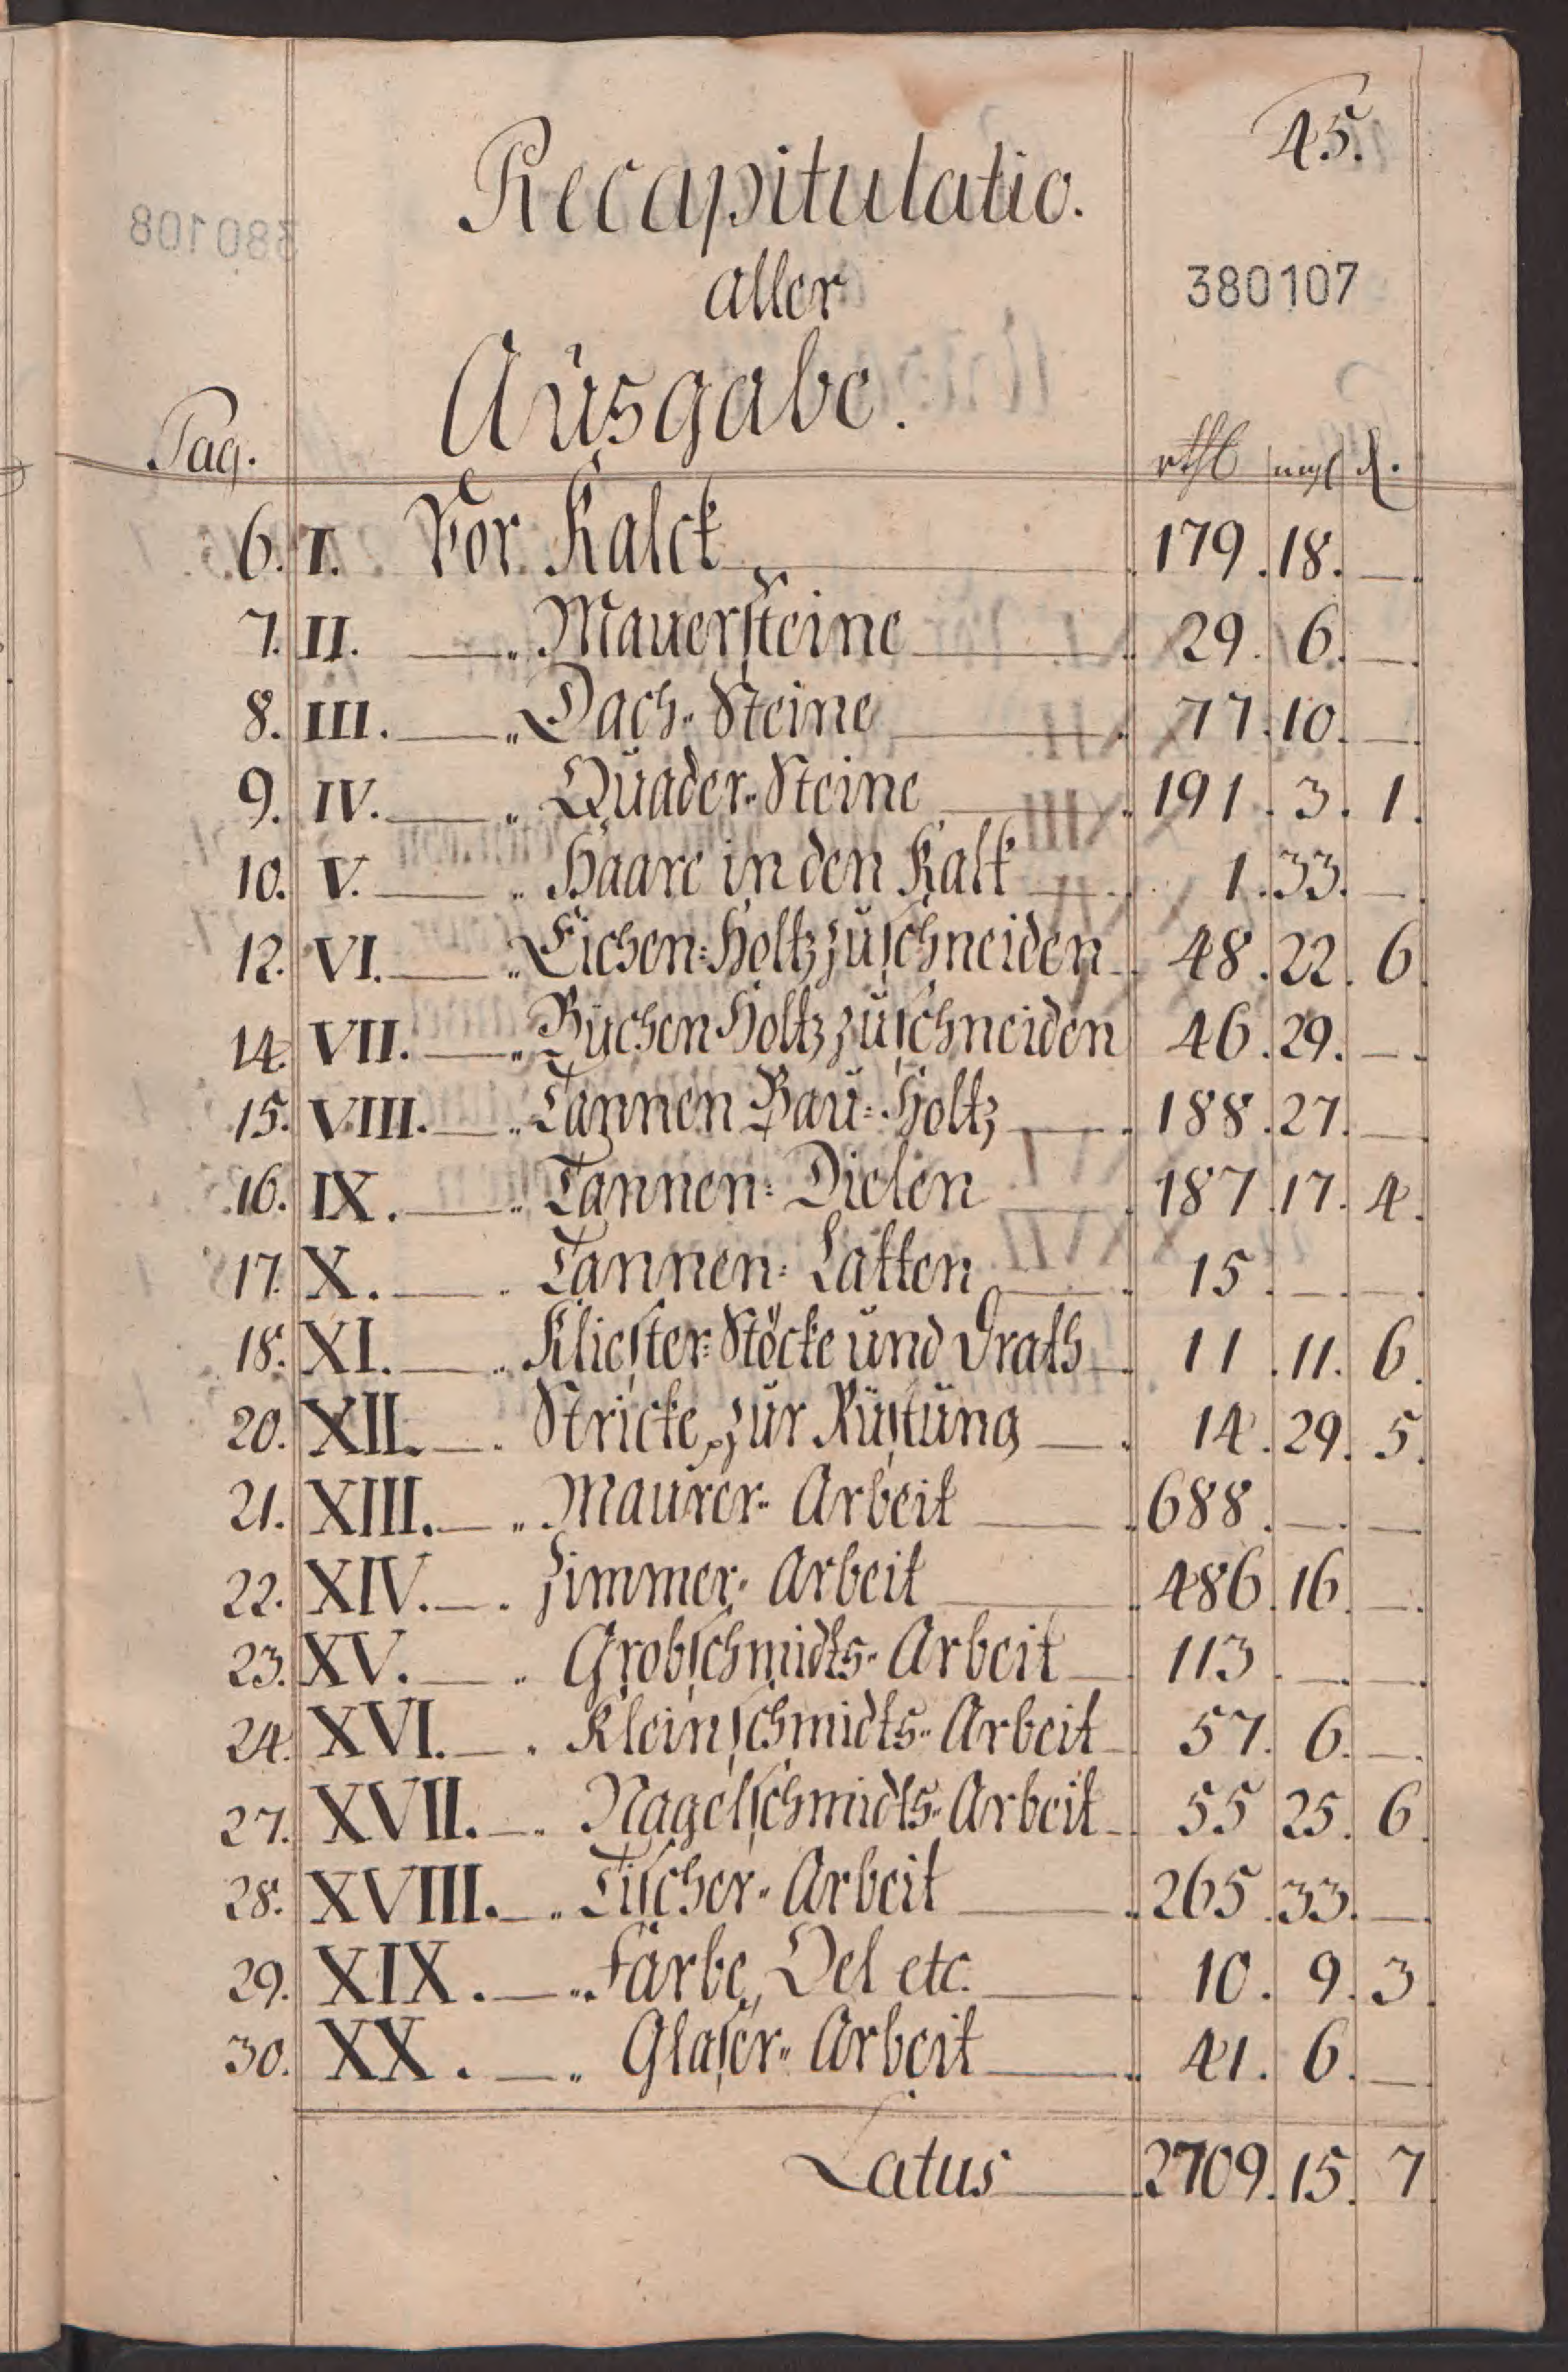 45.
Recapitulatio.
aller
380107
Ausgabe.
Pag. rthl mgl d.
6. I. Vor Kalck 179. 18. —.
7. II. — „ Mauersteine 29. 6. —.
8. III. — „ Dach-Steine 77. 10. —.
9. IV. — „ Quader-Steine 191. 3. 1.
10. V. — „ Haare in den Kalk 1. 33. —.
12. VI. — „ Eichen-Holtz zu schneiden 48. 22. 6.
14. VII. — „ Büchen Holtz zu schneiden 46. 29. —.
15. VIII. — „ Tannen Bau-Holtz 188. 27. —
16. IX. — „ Tannen-Dielen 187. 17. 4.
17. X. — . Tannen-Latten 15. —. —.
18. XI. — „ Kliester-Stöcke und Drath 11. 11. 6.
20. XII. — . Stricke zur Rüstung 14. 29. 5.
21. XIII. — „ Maurer-Arbeit 688. —. —
22. XIV. — . Zimmer-Arbeit 486. 16. —.
23. XV. — „ Grobschmidts-Arbeit 113. —. —.
24. XVI. — . Kleinschmidts-Arbeit 57. 6. —.
27. XVII. — . Nagelschmidts-Arbeit 55 25. 6.
28. XVIII. — „ Tischer-Arbeit 265. 33. —.
29. XIX. — „ Farbe, Oel etc. 10. 9. 3.
30. XX. — „ Glaser-Arbeit 41. 6. —.
Latus 2709. 15. 7.